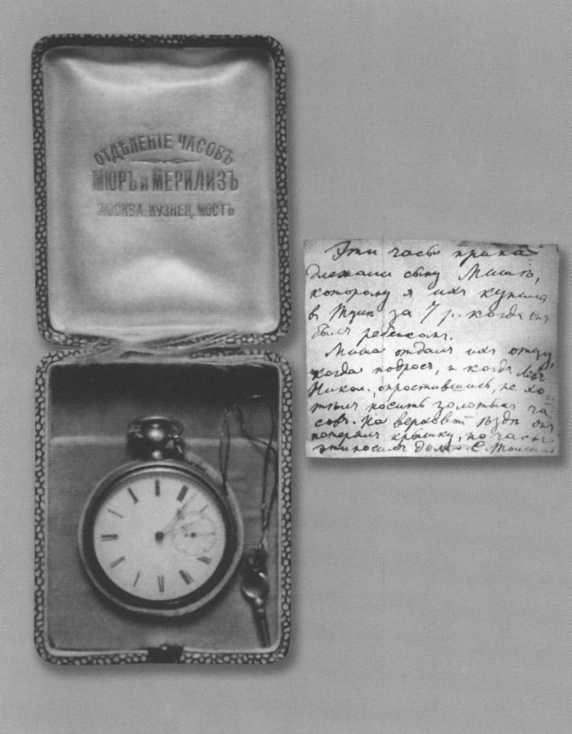 ОТДѢЛЕНІЕ ЧАСОВЪ
МЮРЪ и МЕРИЛИЗЪ
МОСКВА, КУЗНЕЦ. МОСТЪ
Эти часы принад
лежали сыну Мишѣ,
которому я ихъ купила
в Тулѣ за 7 р. когда онъ
былъ ребенкомъ.
Миша отдалъ ихъ отцу,
когда подросъ, и когда Левъ
Никол., опростившись, не хо
тѣлъ носить золотыхъ ча
совъ. На верховой ѣздѣ онъ
потерялъ крышку, но часы
эти носилъ долго. С. Толстая